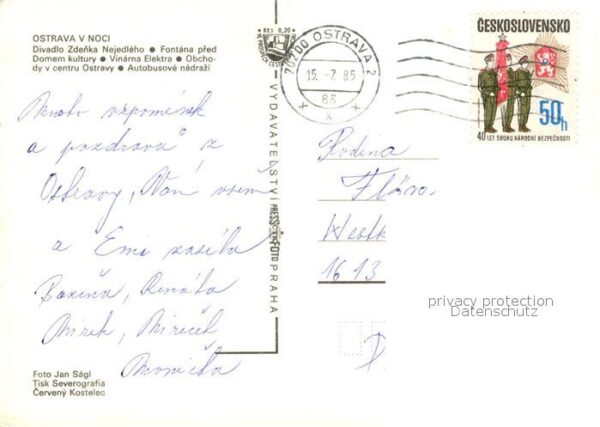 OSTRAVA V NOCI
Divadlo Zdeňka Nejedlého ● Fontána před
Domem kultury ● Vinárna Elektra ● Obcho-
dy v centru Ostravy ● Autobusové nádraží
Mnoho vzpomínek
a pozdravů z
Ostravy, Vám všem
a Emi zasílá
Božena, Renáta
Mirek, Mireček
Foto Jan Ságl
Tisk Severografia
Červený Kostelec
VYDAVATELSTVÍ PRESSFOTO PRAHA
Kčs 0,20
702 00 OSTRAVA 2
15. -7. 85
ČESKOSLOVENSKO
50h
40 LET SBORU NÁRODNÍ BEZPEČNOSTI
Rodina
1613
D
privacy protection
Datenschutz